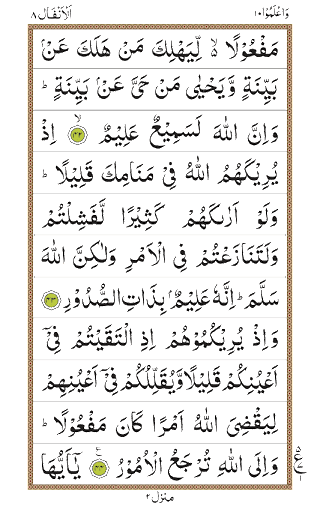 وَاعْلَمُوْٓا ١٠ اَلْاَنْفَال ٨
مَفْعُوْلًا ۙ لِّيَهْلِكَ مَنْ هَلَكَ عَنْۢ
بَيِّنَةٍ وَّيَحْيٰى مَنْ حَىَّ عَنْۢ بَيِّنَةٍ ؕ
وَاِنَّ اللّٰهَ لَسَمِيْعٌ عَلِيْمٌ ۙ‏ ﴿۴۲﴾ اِذْ
يُرِيْكَهُمُ اللّٰهُ فِىْ مَنَامِكَ قَلِيْلًا ؕ
وَلَوْ اَرٰٮكَهُمْ كَثِيْرًا لَّفَشِلْتُمْ
وَلَتَنَازَعْتُمْ فِى الْاَمْرِ وَلٰـكِنَّ اللّٰهَ
سَلَّمَ ؕ اِنَّهٗ عَلِيْمٌۢ بِذَاتِ الصُّدُوْرِ ﴿۴۳﴾
وَاِذْ يُرِيْكُمُوْهُمْ اِذِ الْتَقَيْتُمْ فِىْۤ
اَعْيُنِكُمْ قَلِيْلًا وَّيُقَلِّلُكُمْ فِىْۤ اَعْيُنِهِمْ
لِيَقْضِىَ اللّٰهُ اَمْرًا كَانَ مَفْعُوْلًا ؕ
وَاِلَى اللّٰهِ تُرْجَعُ الْاُمُوْرُ ﴿۴۴﴾ يٰۤاَيُّهَا
منزل ٢